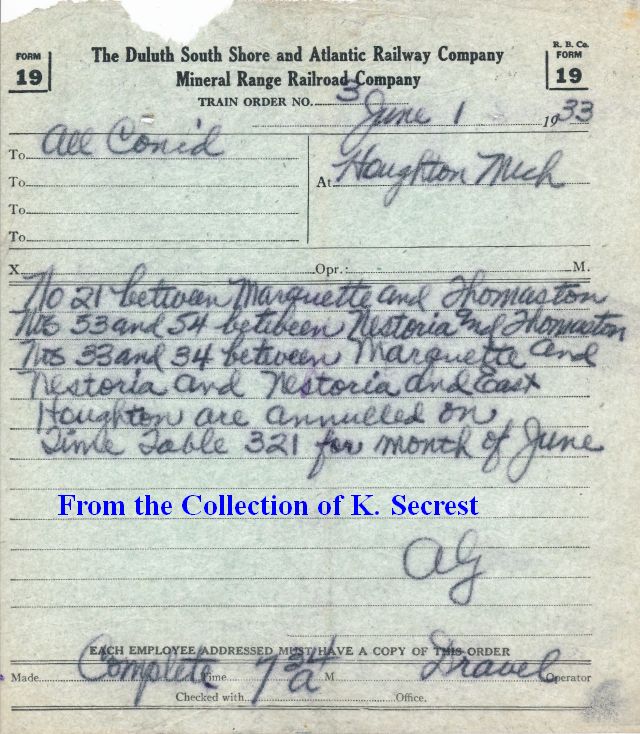 FORM 19
R. B. Co. FORM 19
The Duluth South Shore and Atlantic Railway Company
Mineral Range Railroad Company
TRAIN ORDER NO. 3
June 1 1933
To All Con'd
At Houghton Mich
To
To
To
X Opr.: M.
No 21 between Marquette and Thomaston
Nos 53 and 54 between Nestoria and Thomaston
Nos 33 and 34 between Marquette and
Nestoria and Nestoria and East
Houghton are annulled on
Time Table 321 for month of June
From the Collection of K. Secrest
AG
EACH EMPLOYEE ADDRESSED MUST HAVE A COPY OF THIS ORDER
Made Complete Time 7 34 a M Dravel Operator
Checked with Office.